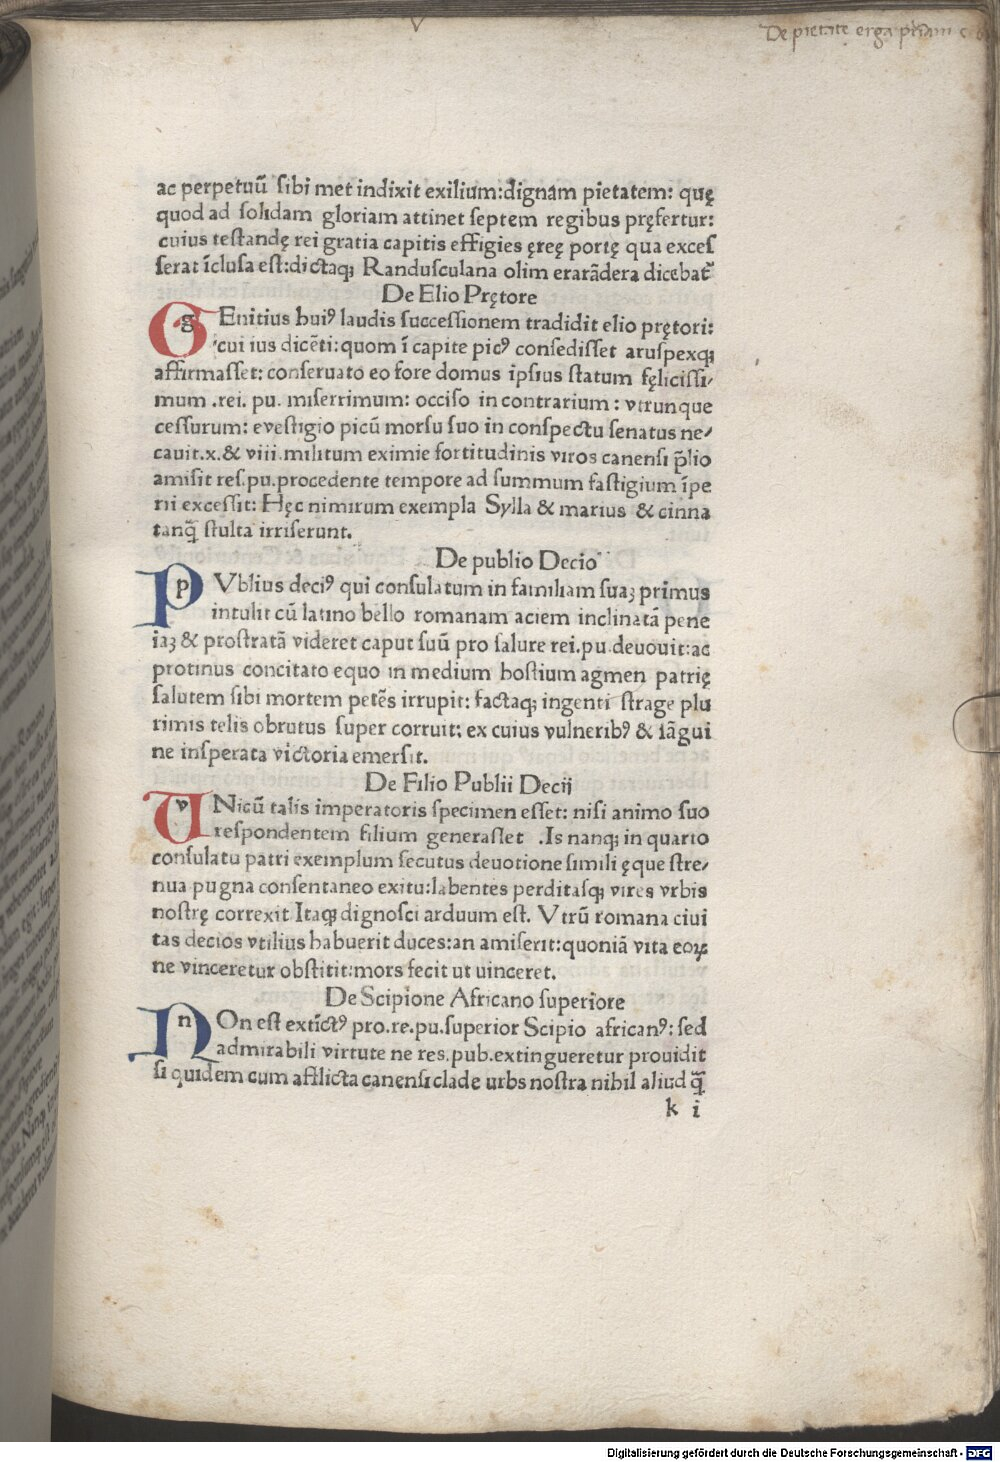 De pietate erga
ac perpetuū sibi met indixit exilium:dignam pietatem: quę
quod ad solidam gloriam attinet septem regibus pręfertur:
cuius testandę rei gratia capitis effigies ęreę portę qua exces
serat īclusa est:dictaqꝫ Randusculana olim erarādera dicebat᷑
De Elio Prętore
gEnitius huiꝰ laudis successionem tradidit elio prętori:
cui ius dicēti:quom ī capite picꝰ consedisset aruspexqꝫ
affirmasset: conseruato eo fore domus ipsius statum fęlicissi⸗
mum .rei. pu. miserrimum: occiso in contrarium : vtrunque
cessurum: evestigio picū morsu suo in conspectu senatus ne⸗
cauit.x.& viii.militum eximie fortitudinis viros canensi p̄lio
amisit res.pu.procedente tempore ad summum fastigium īpe
rii excessit: Hęc nimirum exempla Sylla & marius & cinna
tanq̄ stulta irriserunt.
De publio Decio
pVblius deciꝰ qui consulatum in familiam suaꝫ primus
intulit cū latino bello romanam aciem inclinatā pene
iaꝫ & prostratā videret caput suū pro salute rei.pu.deuouit:ac
protinus concitato equo in medium hostium agmen patrię
salutem sibi mortem petēs irrupit: factaqꝫ ingenti strage plu
rimis telis obrutus super corruit: ex cuius vulneribꝰ & sāgui
ne insperata victoria emersit.
De Filio Publii Decij
vNicū talis imperatoris specimen esset: nisi animo suo
respondentem filium generasset .Is nanqꝫ in quarto
consulatu patri exemplum secutus deuotione simili ęque stre⸗
nua pugna consentaneo exitu:labentes perditasqꝫ vires vrbis
nostrę correxit Itaqꝫ dignosci arduum est. Vtrū romana ciui
tas decios vtilius habuerit duces:an amiserit:quoniā vita eoꝝ
ne vinceretur obstitit:mors fecit ut uinceret.
De Scipione Africano superiore
nOn est extīctꝰ pro.re.pu.superior Scipio africanꝰ: sed
admirabili virtute ne res.pub.extingueretur prouidit
si quidem cum afflicta canensi clade urbs nostra nihil aliud q̄
k i
Digitalisierung gefördert durch die Deutsche Forschungsgemeinschaft - DFG